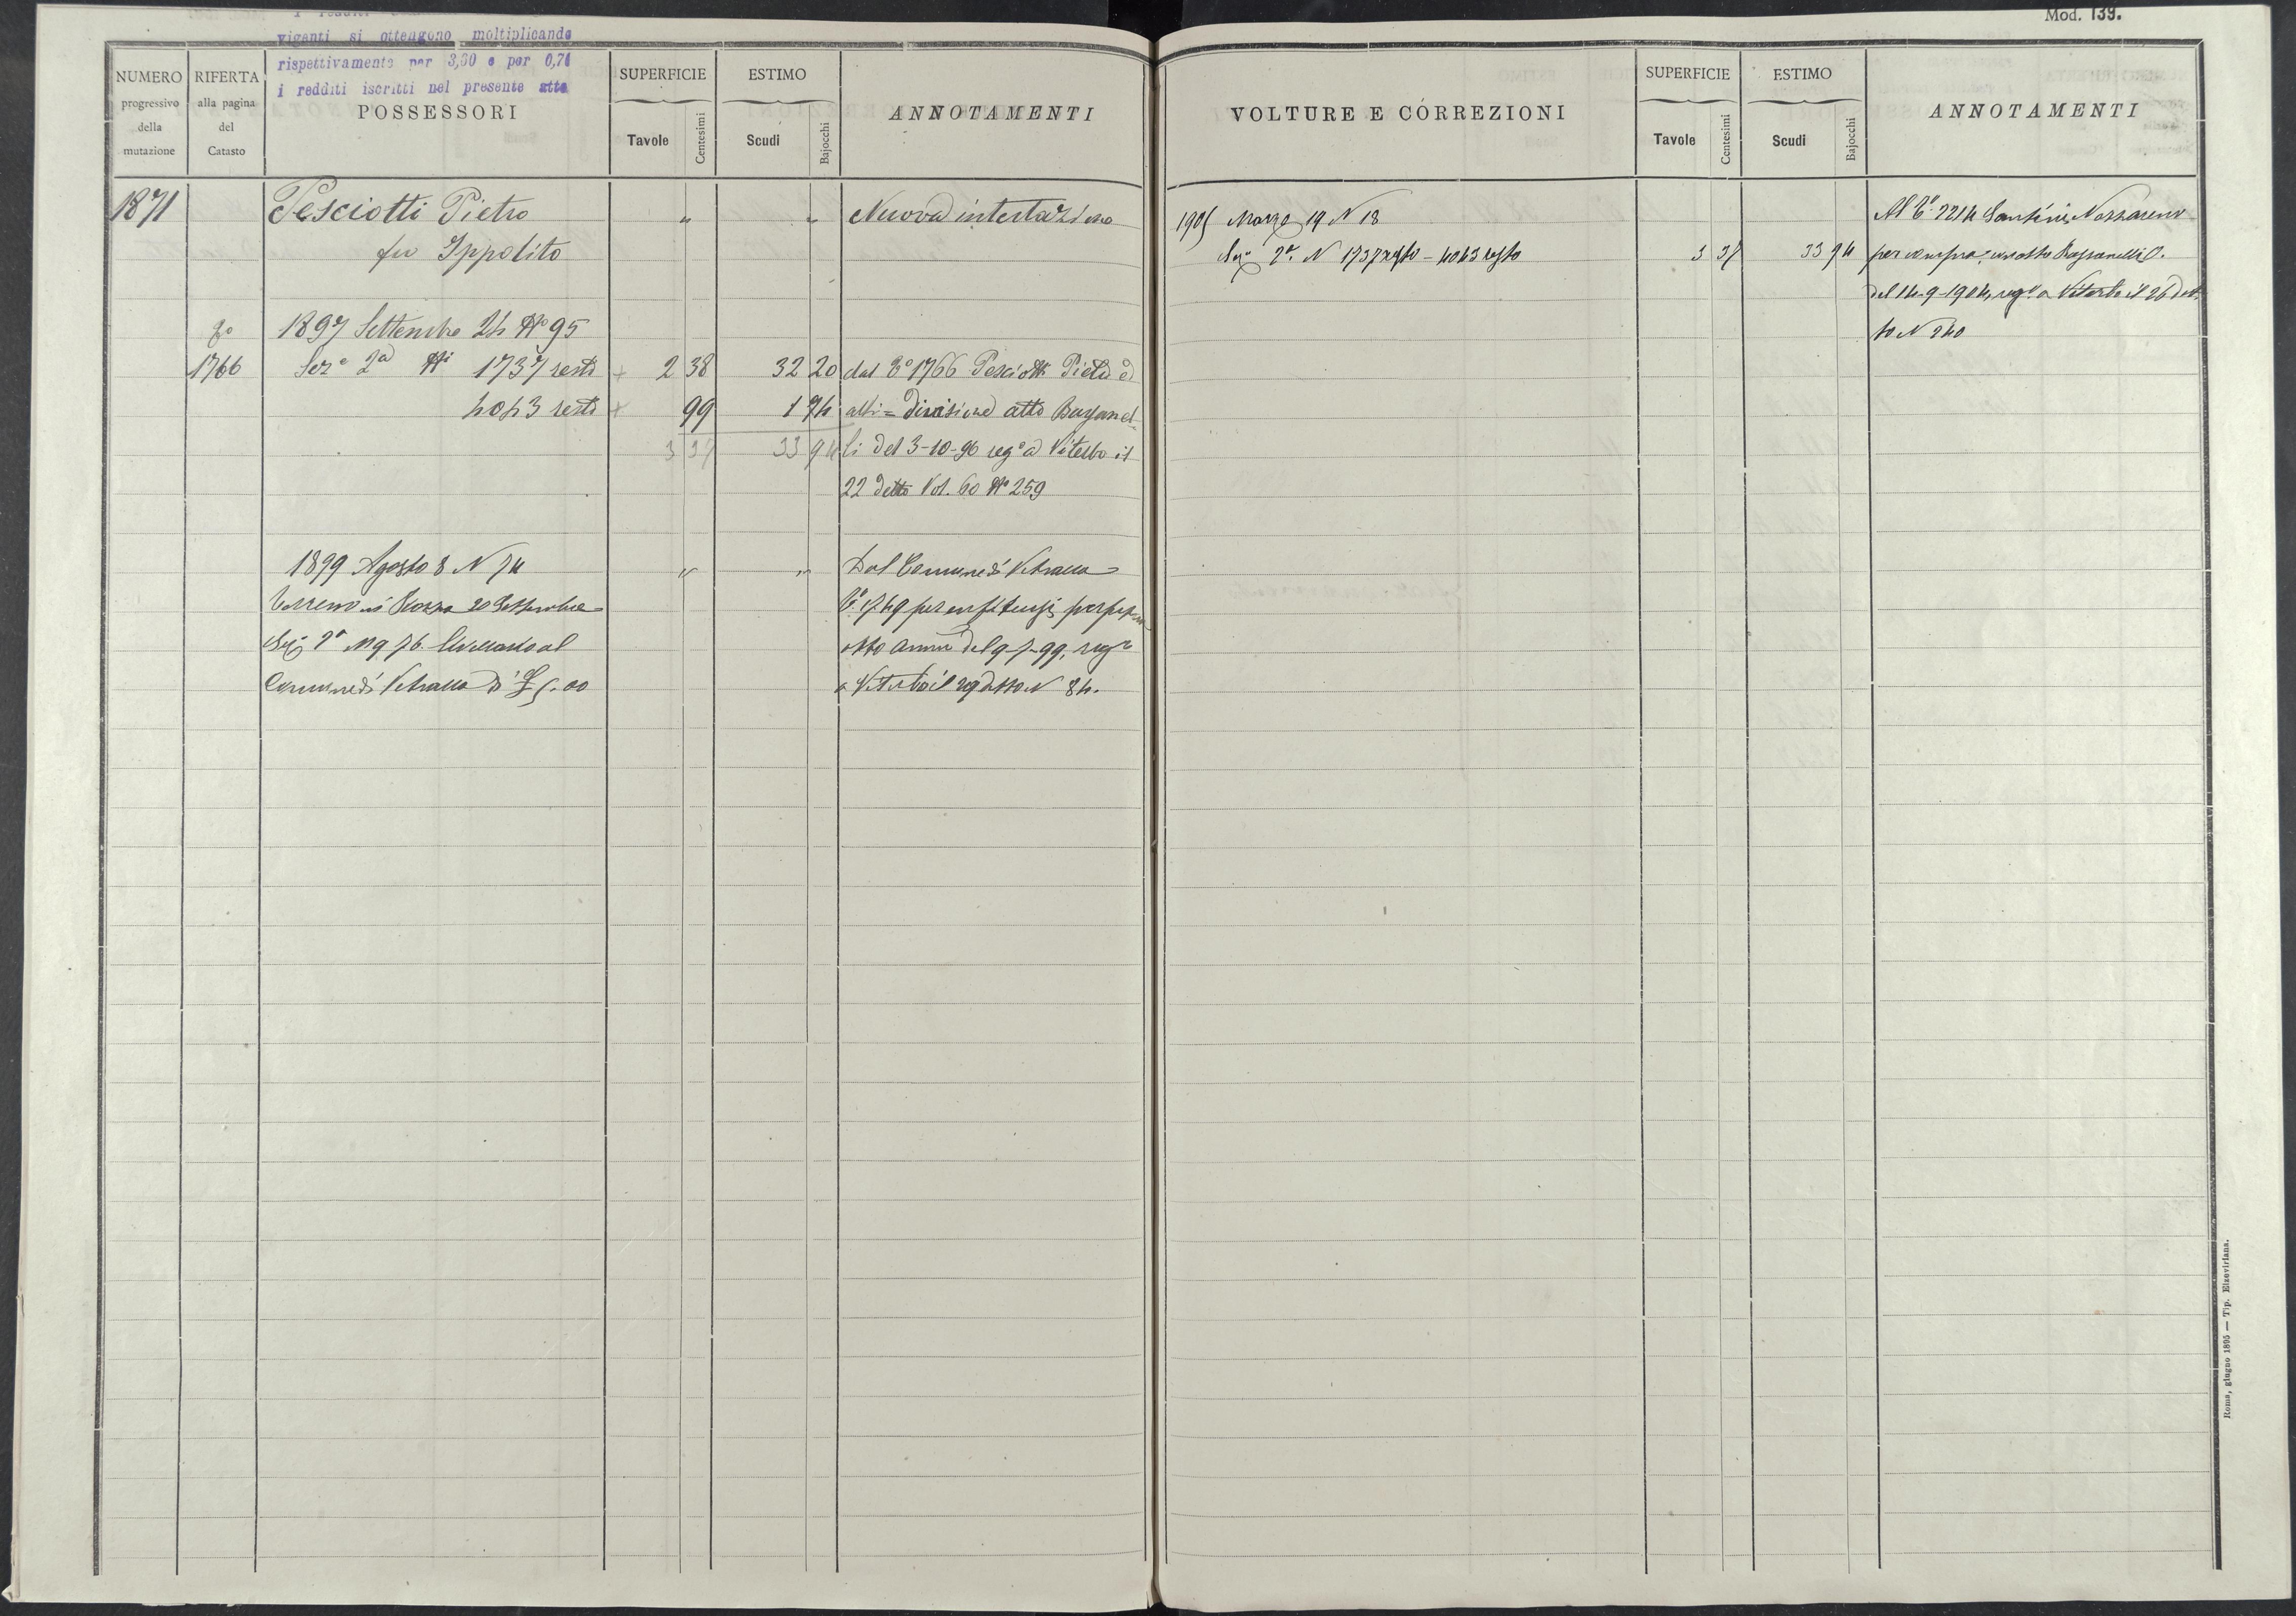 viganti si ottengono moltiplicando
rispettivamente per 3,60 e per 0,71
i redditi iscritti nel presente atto
Mod. 139.
NUMERO progressivo della mutazione
RIFERTA alla pagina del Catasto
POSSESSORI
SUPERFICIE
Tavole
Centesimi
ESTIMO
Scudi
Bajocchi
ANNOTAMENTI
1871
Pesciotti Pietro
" "
Nuova intestazione
fu Ippolito
1897 Settembre 24 No 95
1766
Seze 2a Ni 1737 resto
+ 2 38
32 20
dal Co 1766 Pesciotti Pietro ed
4043 resto
+ 99
1 74
altri = divisione atto Bassanel-
3 37
33 94
li del 3-10-96 rego a Viterbo il
22 detto Vol. 60 No 259
1899 Agosto 8 N 74
" "
Dal Comune di Vetralla
Terreno in Piazza 20 Settembre
Co 1749 per enfiteusi
Seze 2a livellario al
atto del 9-7-99, rego
Comune di Vetralla di £ 5.00
a Viterbo il 29 detto N 84.
VOLTURE E CORREZIONI
SUPERFICIE
Tavole
Centesimi
ESTIMO
Scudi
Bajocchi
ANNOTAMENTI
1905 Marzo 19 N 18
Al Co 2214 Santini Nazzareno
Seze 2a N 1737 resto - 4043 resto
3 37
33 94
per compra, atto Bassanelli
del 14-9-1904, rego a Viterbo il 26 det-
to N 240
Roma, giugno 1895 — Tip. Elzeviriana.